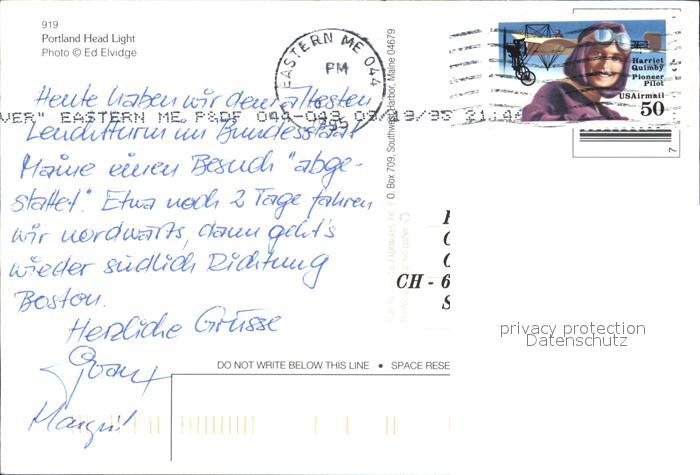 919
Portland Head Light
Photo © Ed Elvidge
EASTERN ME 044
PM
1995
Harriet
Quimby
Pioneer
Pilot
USAirmail
50
VER" EASTERN ME P&DF 044-049 09/19/95 21:
Heute haben wir dem ältesten
Leuchtturm im Bundesstaat
Maine einen Besuch "abge-
stattet". Etwa noch 2 Tage fahren
wir nordwärts, dann geht's
wieder südlich Richtung
Boston.
Herzliche Grüsse
Margrit
O. Box 709, Southwest Harbor, Maine 04679
7
CH - 6
privacy protection
Datenschutz
DO NOT WRITE BELOW THIS LINE • SPACE RESE